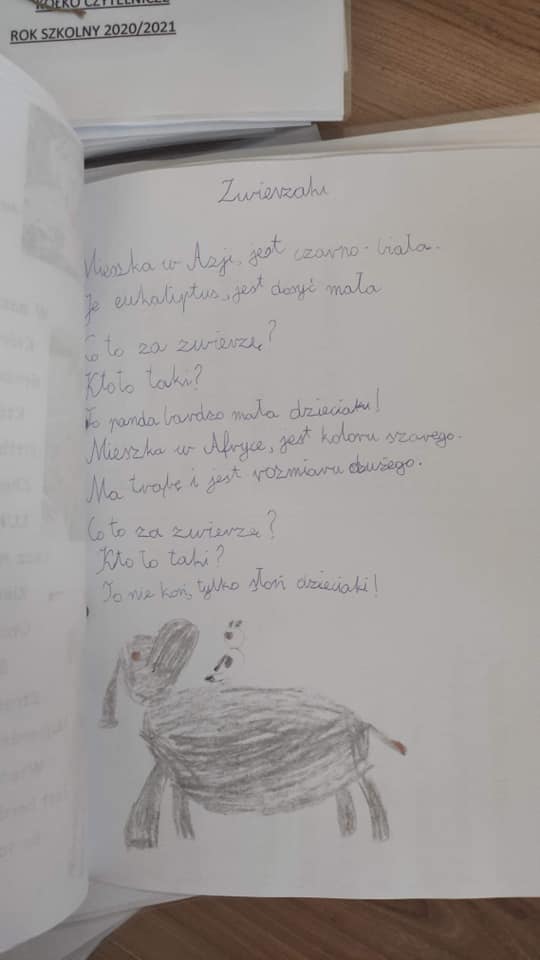 KÓŁKO CZYTELNICZE
ROK SZKOLNY 2020/2021
Zwierzaki
Mieszka w Azji, jest czarno-biała.
Je eukaliptus, jest dosyć mała
Co to za zwierzę?
Kto to taki?
To panda bardzo mała dzieciaki!
Mieszka w Afryce, jest koloru szarego.
Ma trąbę i jest rozmiaru dużego.
Co to za zwierzę?
Kto to taki?
To nie koń, tylko słoń dzieciaki!